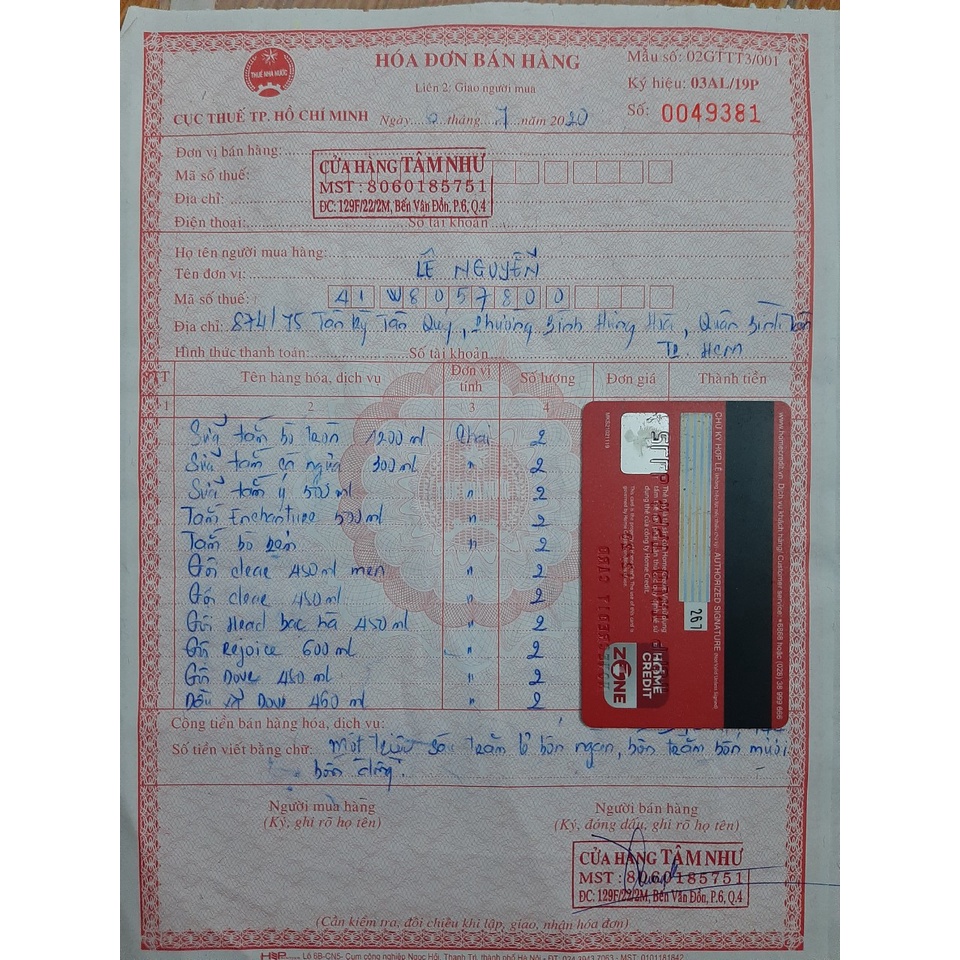 HÓA ĐƠN BÁN HÀNG
Mẫu số: 02GTTT3/001
Liên 2: Giao người mua
Ký hiệu: 03AL/19P
THUẾ NHÀ NƯỚC
CỤC THUẾ TP. HỒ CHÍ MINH
Ngày 6 tháng 7 năm 2020
Số: 0049381
Đơn vị bán hàng:
Mã số thuế:
Địa chỉ:
Điện thoại: Số tài khoản
CỬA HÀNG TÂM NHƯ
MST : 8060185751
ĐC: 129F/22/2M, Bến Vân Đồn, P.6, Q.4
Họ tên người mua hàng:
Tên đơn vị: LÊ NGUYỄN
Mã số thuế: 41W8057800
Địa chỉ: 874/15 Tân Kỳ Tân Quý, Phường Bình Hưng Hoà, Quận Bình Tân
Tp. HCM
Hình thức thanh toán: Số tài khoản
TT Tên hàng hóa, dịch vụ Đơn vị tính Số lượng Đơn giá Thành tiền
1 2 3 4
Sữa tắm bò 1200 ml Chai 2
Sữa tắm cá ngựa 300 ml " 2
Sữa tắm ý 500 ml " 2
Tắm Enchanteur 500 ml " 2
Tắm bò " 2
Gội clear 450 ml men " 2
Gội clear 450 ml " 2
Gội Head bạc hà 450 ml " 2
Gội Rejoice 600 ml " 2
Gội Dove 450 ml " 2
Dầu xả Dove 450 ml " 2
www.homecredit.vn. Dịch vụ khách hàng/ Customer service:
CHỮ KÝ HỢP LỆ AUTHORIZED SIGNATURE
267
HOME CREDIT
ZONE
Cộng tiền bán hàng hóa, dịch vụ:
Số tiền viết bằng chữ: Một triệu sáu trăm lẻ bốn ngàn, bốn trăm bốn mươi
bốn đồng.
Người mua hàng
(Ký, ghi rõ họ tên)
Người bán hàng
(Ký, đóng dấu, ghi rõ họ tên)
CỬA HÀNG TÂM NHƯ
MST : 8060185751
ĐC: 129F/22/2M, Bến Vân Đồn, P.6, Q.4
(Cần kiểm tra, đối chiếu khi lập, giao, nhận hóa đơn)
Lô 5B-CN5- Cụm công nghiệp Ngọc Hồi, Thanh Trì, thành phố Hà Nội - ĐT: 024.3943 7063 - MST: 0101181842